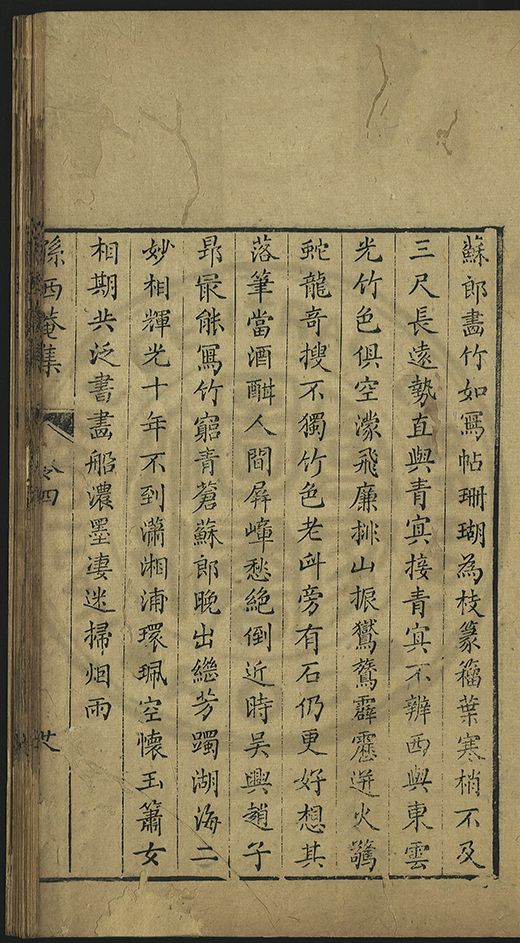 蘇郎畫竹如寫帖珊瑚為枝篆籒葉寒梢不及
三尺長遠勢直與青冥接青冥不辨西與東雲
光竹色俱空濛飛廉排山振鷟鶩霹靂迸火驚
蛇龍奇搜不獨竹色老爾旁有石仍更好想其
落筆當酒酣人間屏嶂愁絕倒近時吳興趙子
昂最能寫竹窮青蒼蘇郎晚出繼芳躅湖海二
妙相輝光十年不到瀟湘浦環珮空懷玉簫女
相期共泛書畫船濃墨凄迷掃烟雨
孫西菴集
卷四